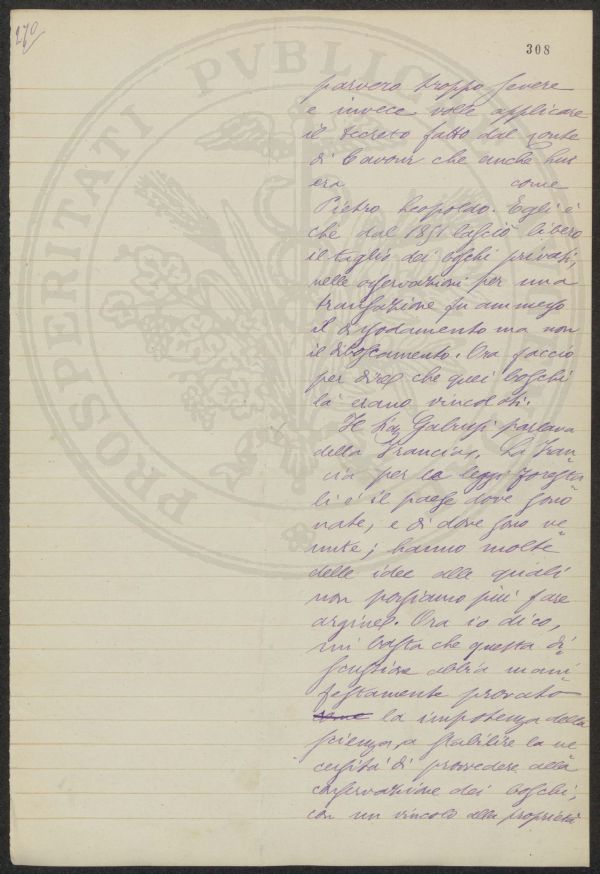 270
308
PROSPERITATI PVBLICAE
parvero troppo severe
e invece volle applicare
il decreto fatto dal conte
di Cavour che anche lui
era come
Pietro Leopoldo. Egli è
che dal 1851 lasciò libero
il taglio dei boschi privati,
nelle osservazioni per una
transazione fu ammesso
il dissodamento ma non
il diboscamento. Ora faccio
per dire che quei boschi
là erano vincolati.
Il parlava
della Francia. La Fran
cia per le leggi foresta
li è il paese dove sono
nate, e di dove sono ve
nute; hanno molte
delle idee alle quali
non possiamo più fare
argine. Ora io dico,
mi basta che questa di
scussione abbia mani
festamente provato
la impotenza della
scienza, a stabilire la ne
cessità di provvedere alla
conservazione dei boschi,
con un vincolo alla proprietà